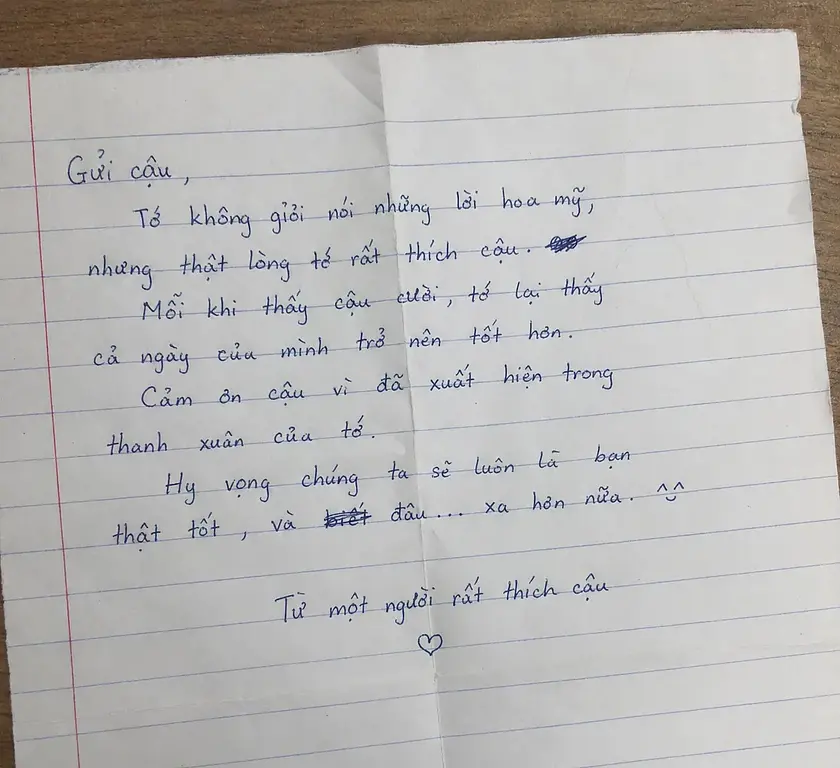 Gửi cậu,
Tớ không giỏi nói những lời hoa mỹ,
nhưng thật lòng tớ rất thích cậu.
Mỗi khi thấy cậu cười, tớ lại thấy
cả ngày của mình trở nên tốt hơn.
Cảm ơn cậu vì đã xuất hiện trong
thanh xuân của tớ.
Hy vọng chúng ta sẽ luôn là bạn
thật tốt, và biết đâu... xa hơn nữa. ^^
Từ một người rất thích cậu
♡